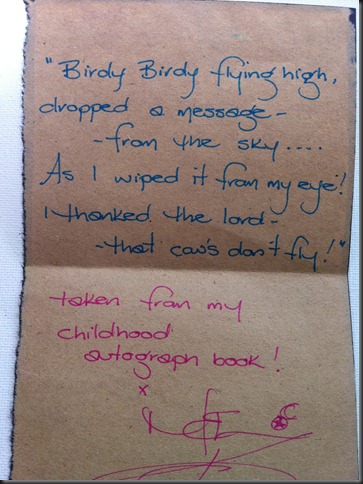 "Birdy Birdy flying high,
dropped a message -
- from the sky....
As I wiped it from my eye!
I thanked the lord -
- that cow's don't fly!"
taken from my
childhood
autograph book!
x